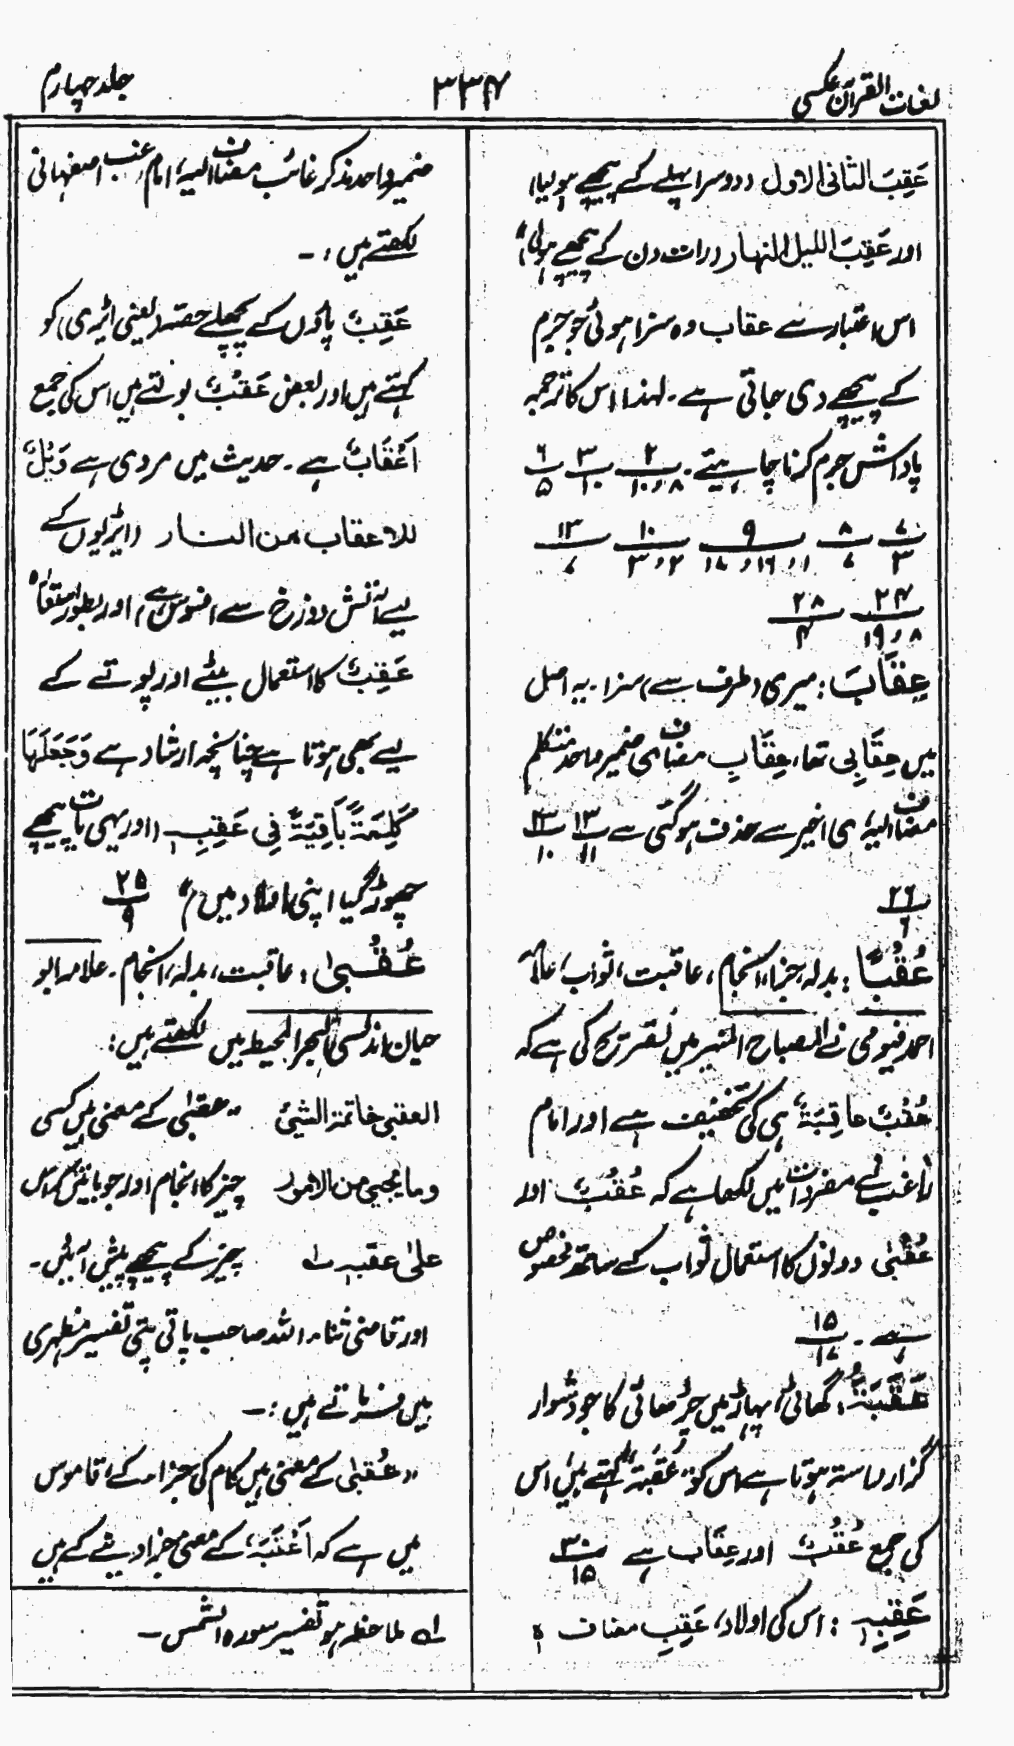 لغات القرآن عکسی
۳۳۴
جلد چہارم
عَقِبَ الثانی الاول (دوسرا پہلے کے پیچھے ہولیا)
اور عَقِبَ اللیل النہار (رات دن کے پیچھے ہولی)"
اس اعتبار سے عقاب وہ سزا ہوئی جو جرم
کے پیچھے دی جاتی ہے۔ لہٰذا اس کا ترجمہ
پاداشِ جرم کرنا چاہیئے۔ ۲/۸،۱۰ ۳/۱۰ ۶/۵
۷/۳ ۸/۷ ۹/۱،۱۶،۱۸ ۱۰/۲،۳ ۱۳/۷
۲۴/۸،۱۹ ۲۸/۴
عِقَابَ: میری (طرف سے) سزا۔ یہ اصل
میں عِقَابِی تھا، عِقَابِ مضاف ی ضمیر واحد متکلم
مضاف الیہ، ی اخیر سے حذف ہوگئی ہے ۱۳/۱۱ ۲۳/۱۰
۲۶/۶
عُقْبًا: بدلہ، جزا، انجام، عاقبت، ثواب، علامہ
احمد فیومی نے المصباح المنیر میں تصریح کی ہے کہ
عُقُبٌ عاقِبَةٌ ہی کی تخفیف ہے اور امام
راغب نے مفردات میں لکھا ہے کہ عُقُبٌ اور
عُقْبٰی دونوں کا استعمال ثواب کے ساتھ مخصوص
ہے۔ ۱۵/۱۷
عَقَبَةٌ: گھاٹی، پہاڑ میں چڑھائی کا جو دشوار
گزار راستہ ہوتا ہے اس کو "عَقَبَة" کہتے ہیں، اس
کی جمع عُقُبٌ اور عِقَاب ہے ۳۰/۱۵
عَقِبِہٖ: اس کی اولاد، عَقِبِ مضاف ہٖ
ضمیر واحد مذکر غائب مضاف الیہ، امام راغب اصفہانی
لکھتے ہیں:۔
عَقِبٌ پاؤں کے پچھلے حصّہ (یعنی ایڑی) کو
کہتے ہیں اور بعض عَقْبٌ بولتے ہیں اس کی جمع
اَعْقَابٌ ہے۔ حدیث میں مروی ہے وَیْلٌ
للاعقاب من النار (ایڑیوں کے
لیے آتش دوزخ سے افسوس ہے) اور بطور استعارہ
عَقِبٌ کا استعمال بیٹے اور پوتے کے
لیے بھی ہوتا ہے چنانچہ ارشاد ہے وَجَعَلَهَا
كَلِمَةً بَاقِيَةً فِي عَقِبِهٖ (اور یہی بات پیچھے
چھوڑ گیا اپنی اولاد میں)" ۲۵/۹
عُقْبیٰ: عاقبت، بدلہ، انجام۔ علامہ ابو
حیان اندلسی البحر المحیط میں لکھتے ہیں:
العقبی خاتمة الشیئ "عقبٰی کے معنی ہیں کسی
وما یجیئ من الامور چیز کا انجام اور جو باتیں کہ اس
علیٰ عقبہ لہ چیز کے پیچھے پیش آئیں۔
اور قاضی ثناء اللہ صاحب پانی پتی تفسیر مظہری
میں فرماتے ہیں:۔
"عُقبٰی کے معنی ہیں کام کی جزاء کے، قاموس
میں ہے کہ اَعْقَبَہٗ کے معنی جزا دینے کے ہیں
لہ ملاحظہ ہو تفسیر سورہ الشمس۔